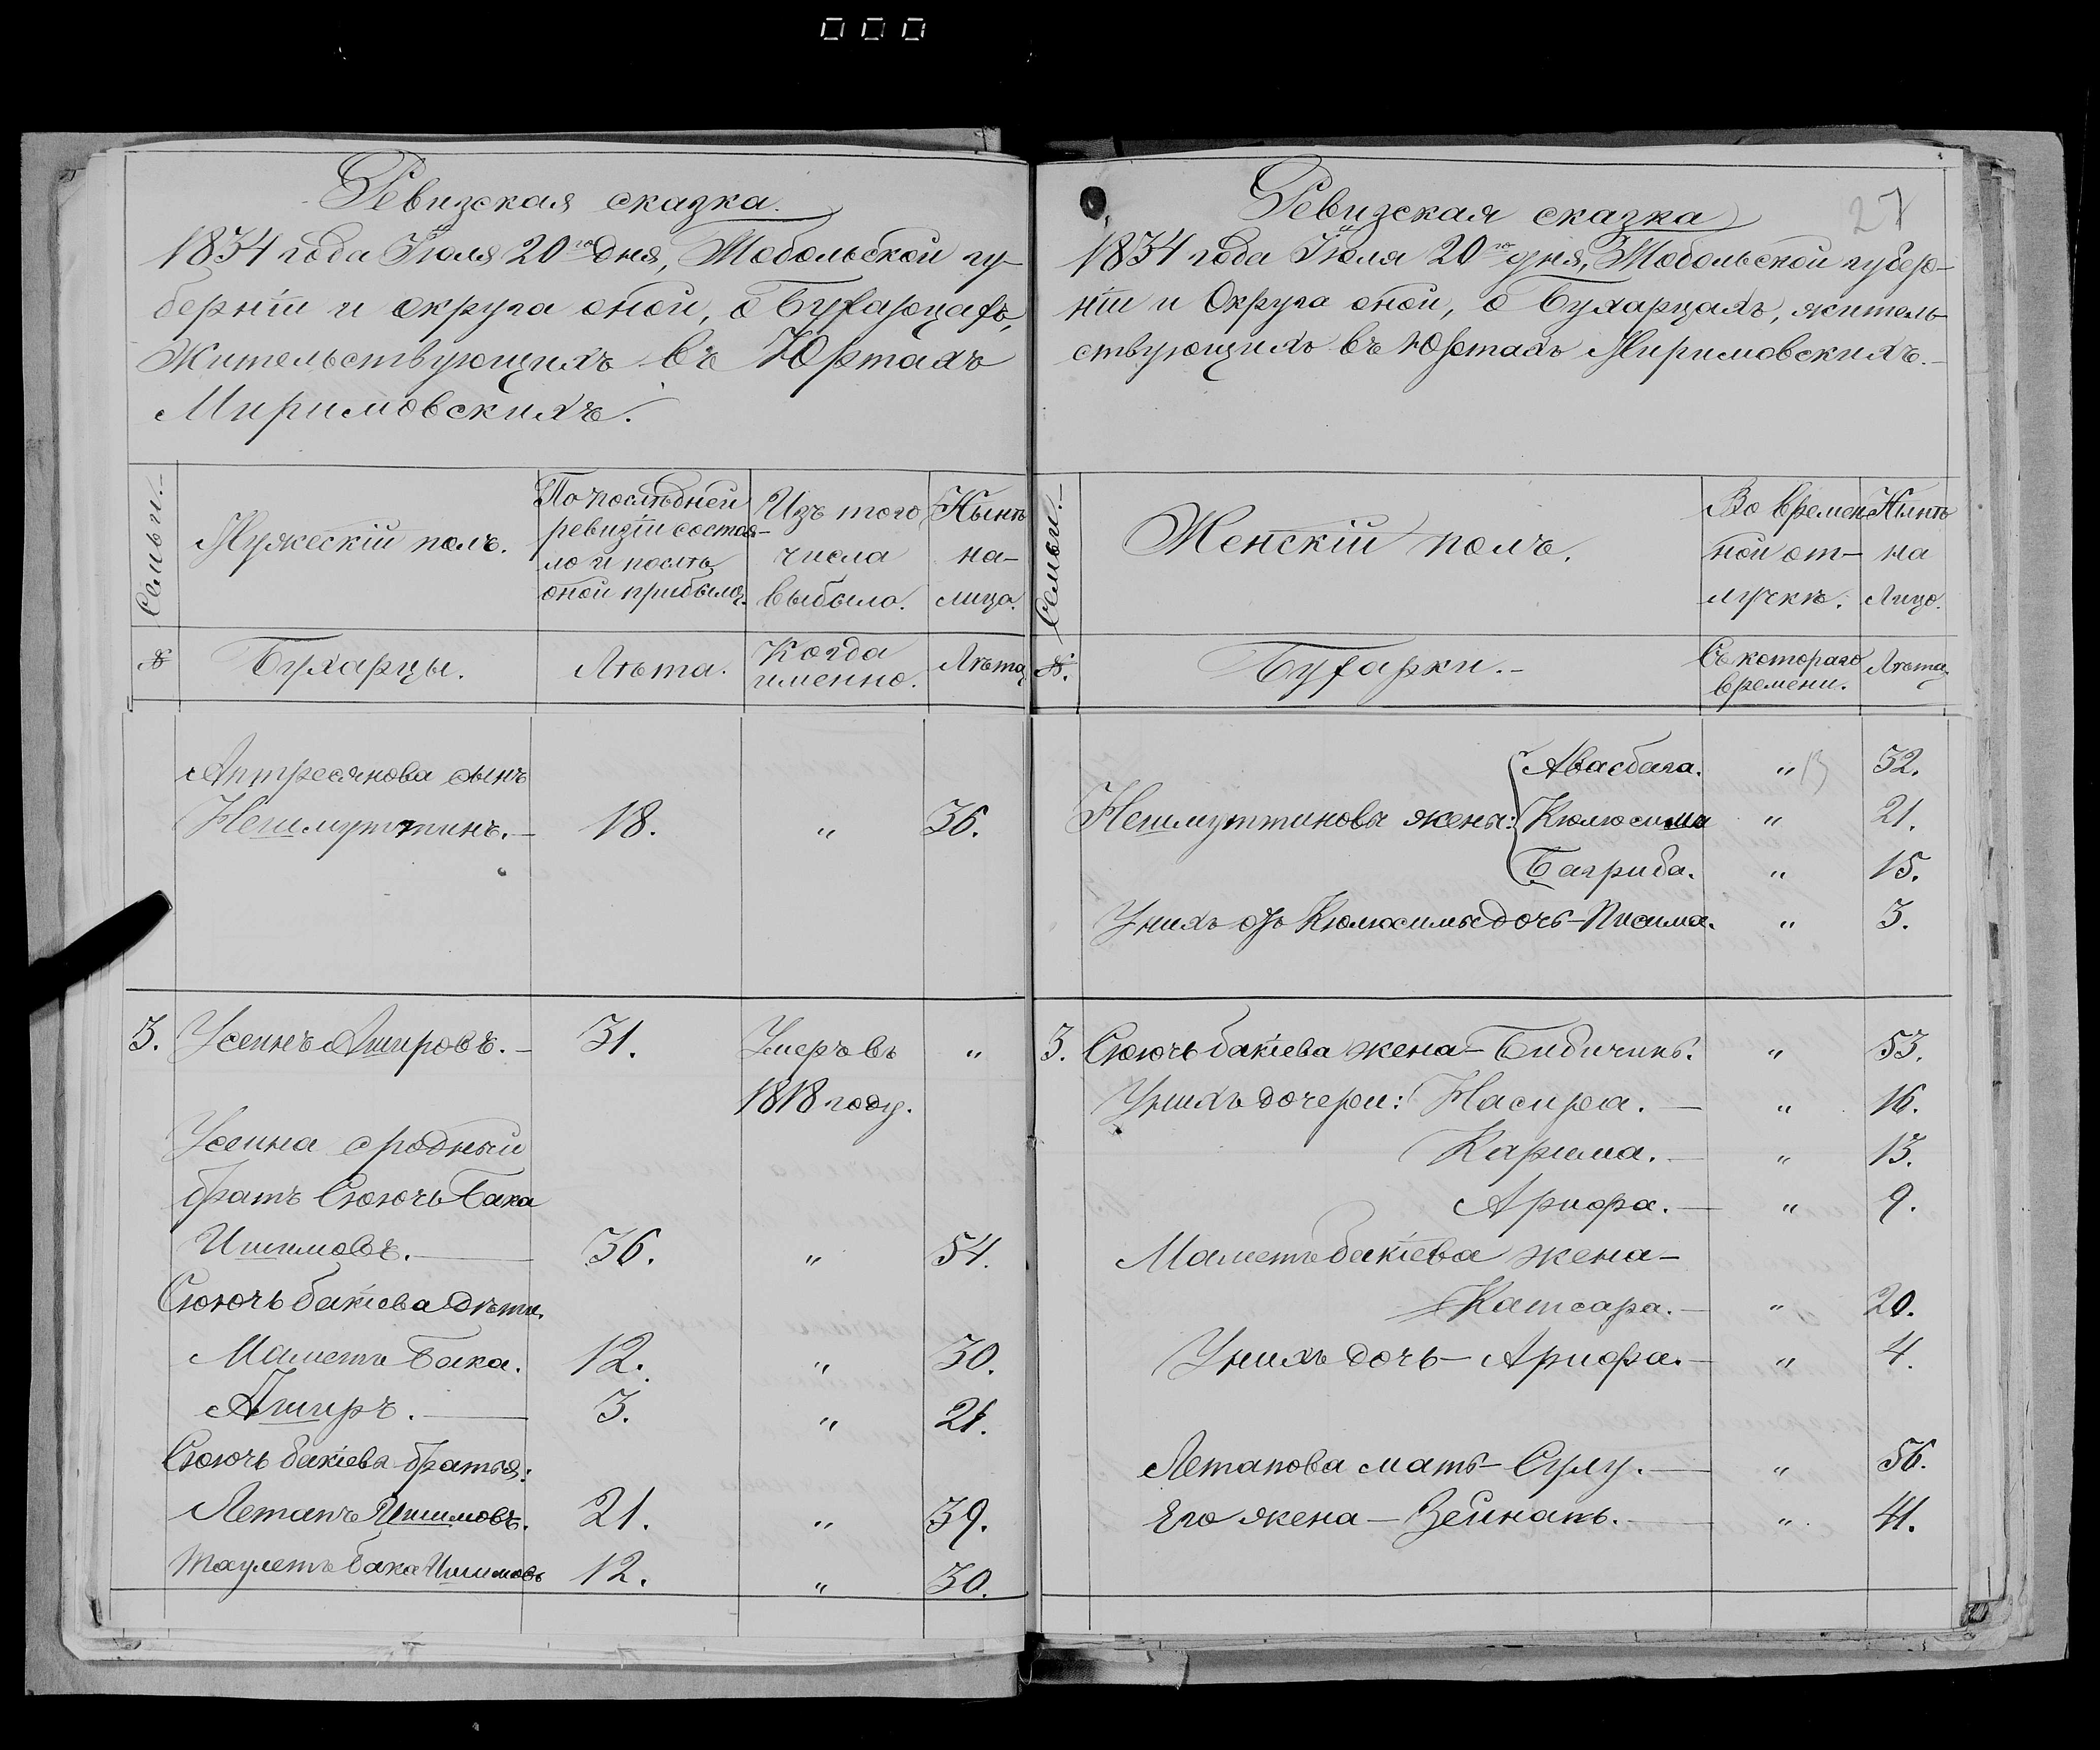 Ревизская сказка
1834 года Іюля 20го дня, Тобольской гу-
берніи и округа оной, о Бухарцахъ,
Жительствующихъ въ Юртахъ
Миримовскихъ.
Семьи.
Мужескій полъ.
По послѣдней
ревизіи состоя-
ло и послѣ
оной прибыло.
Изъ того
числа
выбыло.
Нынѣ
на-
лицо.
№
Бухарцы.
Лѣта.
Когда
именно.
Лѣта
сынъ
Нешмуттинъ. 18. " 36.
3. Усеинъ Ашировъ. 31. Умеръ въ "
1818 году.
Усеина сродный
братъ Сююч Бака
Ишимовъ. 36. " 54.
Сююч бакіева дѣти.
Маметъ Бака. 12. " 30.
Аширъ. 3. " 21.
Сююч бакіева братья:
Ишимовъ. 21. " 39.
Таулетъ бака Ишимовъ 12. " 30.
27
Ревизская сказка
1834 года Іюля 20го дня, Тобольской губер-
ніи и Округа оной, о Бухарцахъ, житель-
ствующихъ въ Юртахъ Миримовскихъ.
Семьи.
Женскій полъ.
Во времен
ной от-
лучкѣ.
Нынѣ
на
Лицо.
№.
Бухарки.
Съ котораго
времени.
Лѣта
Авасбага. " 32.
Нешмуттинова жены: Кюлюсима " 21.
Багриба. " 15.
У нихъ отъ Кюлюсимы дочь " 3.
3. Сююч бакіева жена - Бибичинь. " 53.
У нихъ дочери: Насира. " 16.
Карима. " 13.
Арифа. " 9.
Маметъ бакіева жена -
" 20.
У нихъ дочь - Арифа. " 4.
мать - Сулу. " 56.
Его жена - Зейнапь. " 41.